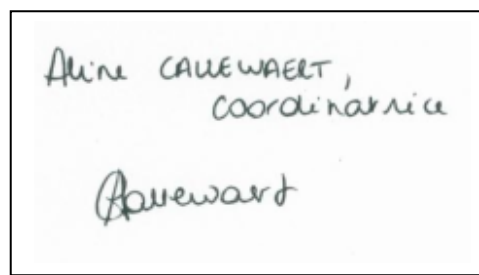 Aline CALLEWAERT,
Coordinatrice
ACallewaert